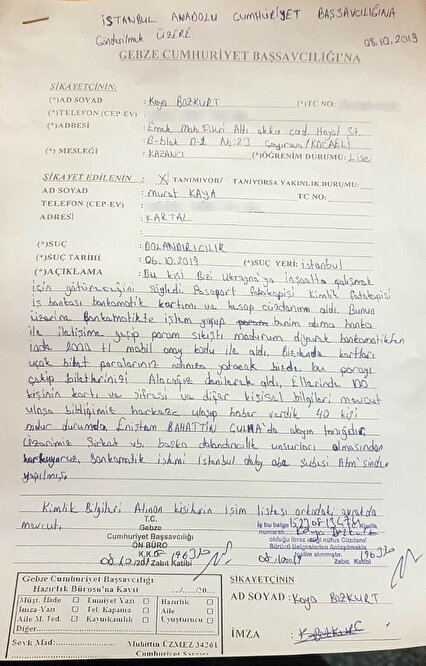 İSTANBUL ANADOLU CUMHURİYET BAŞSAVCILIĞINA
Gönderilmek ÜZERE
08.10.2019
GEBZE CUMHURİYET BAŞSAVCILIĞI'NA
ŞİKAYETÇİNİN:
(*)AD SOYAD : Kaya BOZKURT (*)TC NO:
(*)TELEFON (CEP-EV) :
(*)ADRESİ : Emek Mah Fikri Altı cad. Hayat St.
D-blok D-1 No:23 Çayırova/(KOCAELİ)
(*) MESLEĞİ : KAZANCI (*)ÖĞRENİM DURUMU: Lise
ŞİKAYET EDİLENİN : X TANIMIYOR/ TANIYORSA YAKINLIK DURUMU:
AD SOYAD : murat KAYA TC NO:
TELEFON (CEP-EV) :
ADRESİ : KARTAL
(*)SUÇ : DOLANDIRICILIK
(*)SUÇ TARİHİ : 06.10.2019 (*)SUÇ YERİ: istanbul
(*)AÇIKLAMA : Bu kişi Bizi Ukrayna'ya inşaatta çalışmak
için götüreceğini söyledi. Pasaport fotokopisi kimlik fotokopisi
iş bankası bankamatik kartımı ve hesap cüzdanımı aldı. Bunun
üzerine Bankamatikte işlem yapıp benim adıma banka
ile iletişime geçip param sıkıştı mağdurum diyerek bankamatikten
iade 2000 tl mobil onay kodu ile aldı. Bizden kartları
uçak bilet paralarınız adınıza yatacak bizde bu parayı
çekip biletlerinizi Alacağız denilerek aldı. Ellerinde 100
kişinin kartı ve şifresi ve diğer kişisel bilgileri mevcut
ulaşa bildiğimiz herkeze ulaşıp haber verdik 40 kişi
mağdur durumda Eniştem BAHATTİN olayın tanığıdır.
Üzerimize Şirket vb. başka dolandırıcılık unsurları olmasından
korkuyoruz. Bankamatik işlemi İstanbul Şubesi Atm'sinde
yapılmış.
Kimlik Bilgileri Alınan kişilerin isim listesi arkadaki
mevcut.
T.C.
Gebze
Cumhuriyet Başsavcılığı
ÖN BÜRO
Zabıt Katibi
İş bu belge T.C. Kimlik
numaralı Kaya Bozkurt
olduğu ibraz ettiği nüfus Cüzdanı/
Sürücü Belgesinden Anlaşılmakla
teslim alınmıştır.
Zabıt Katibi
Gebze Cumhuriyet Başsavcılığı
Hazırlık Bürosu'na Kayıt
.../...../20....
Müşt. İfade Emniyet Yazı Hazırlık
İmza-Yazı Tel. Kapama Aile
Aile M. Ted. Kaymakamlık Uyuşturucu
Diğer
Sevk Mad: Muhittin ÜZMEZ 34261
Cumhuriyet Savcısı
ŞİKAYETÇİNİN
AD SOYAD : Kaya BOZKURT
İMZA : K.BOZKURT